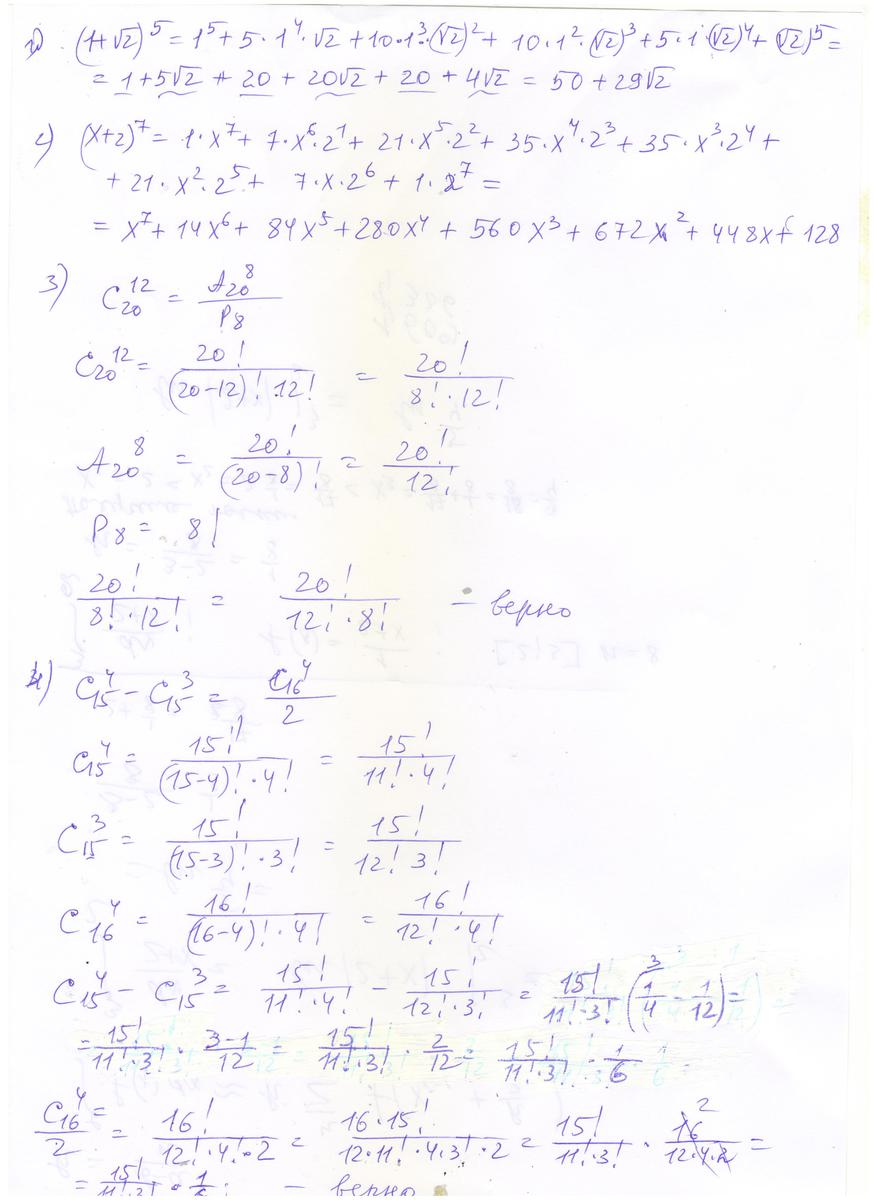 д) (1+√2)^5 = 1^5 + 5·1^4·√2 + 10·1^3·(√2)^2 + 10·1^2·(√2)^3 + 5·1·(√2)^4 + (√2)^5 =
= 1 + 5√2 + 20 + 20√2 + 20 + 4√2 = 50 + 29√2
е) (x+2)^7 = 1·x^7 + 7·x^6·2^1 + 21·x^5·2^2 + 35·x^4·2^3 + 35·x^3·2^4 +
+ 21·x^2·2^5 + 7·x·2^6 + 1·2^7 =
= x^7 + 14x^6 + 84x^5 + 280x^4 + 560x^3 + 672x^2 + 448x + 128
3) C_20^12 = A_20^8 / P_8
C_20^12 = 20! / ((20-12)!·12!) = 20! / (8!·12!)
A_20^8 = 20! / (20-8)! = 20! / 12!
P_8 = 8!
20! / (8!·12!) = 20! / (12!·8!) — верно
4) C_15^4 - C_15^3 = C_16^4 / 2
C_15^4 = 15! / ((15-4)!·4!) = 15! / (11!·4!)
C_15^3 = 15! / ((15-3)!·3!) = 15! / (12! 3!)
C_16^4 = 16! / ((16-4)!·4!) = 16! / (12!·4!)
C_15^4 - C_15^3 = 15! / (11!·4!) - 15! / (12!·3!) = 15! / (11!·3!) (1/4 - 1/12) =
= 15! / (11!·3!) · (3-1)/12 = 15! / (11!·3!) · 2/12 = 15! / (11!·3!) · 1/6
C_16^4 / 2 = 16! / (12!·4!·2) = 16·15! / (12·11!·4·3!·2) = 15! / (11!·3!) · 16 / (12·4·2) =
= 15! / (11!·3!) · 1/6; — верно